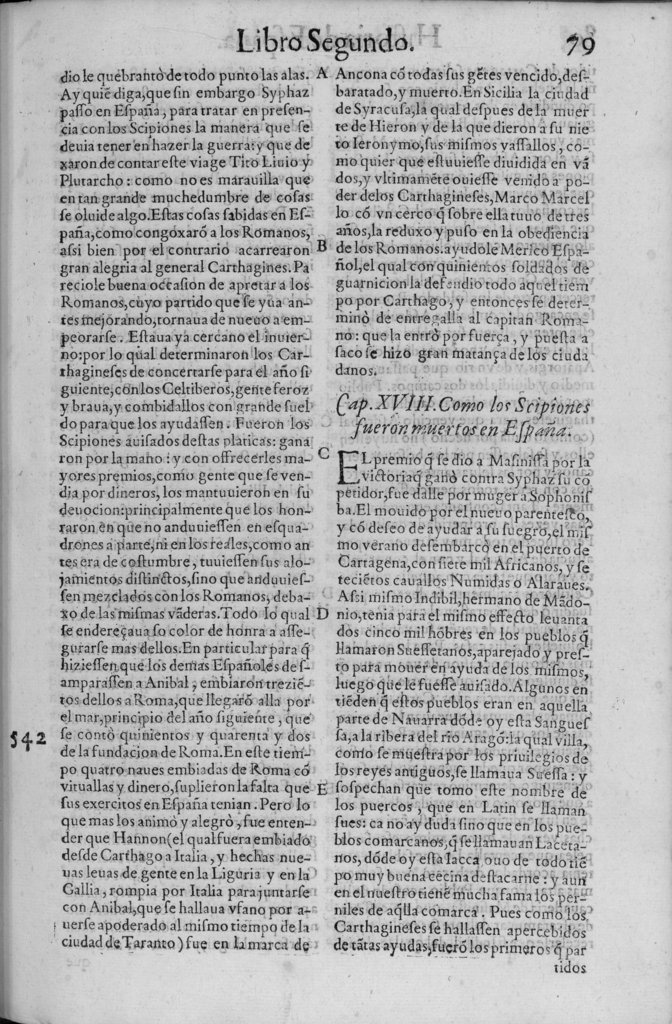 Libro Segundo. 79
dio le quebrantò de todo punto las alas.
Ay quiē diga, que sin embargo Syphaz
passo en España, para tratar en presen-
cia con los Scipiones la manera que se
deuia tener en hazer la guerra: y que de
xaron de contar este viage Tito Liuio y
Plutarcho: como no es marauilla que
en tan grande muchedumbre de cosas
se oluide algo. Estas cosas sabidas en Es-
paña, como congóxarō a los Romanos,
assi bien por el contrario acarrearon
gran alegria al general Carthagines. Pa
reciole buena occasion de apretar a los
Romanos, cuyo partido que se yua an-
tes mejorando, tornaua de nueuo a em-
peorarse. Estaua ya cercano el inuier-
no: por lo qual determinaron los Car-
thagineses de concertarse para el año si
guiente, con los Celtiberos, gente feroz
y braua, y combidallos con grande suel
do para que los ayudassen. Fueron los
Scipiones auisados destas platicas: gana
ron por la mano: y con offrecerles ma-
yores premios, como gente que se ven-
dia por dineros, los mantuuieron en su
deuocion: principalmente que los hon-
raron en que no anduuiessen en esqua-
drones a parte, ni en los reales, como an
tes era de costumbre, tuuiessen sus alo-
jamientos distinctos, sino que anduuies-
sen mezclados con los Romanos, deba-
xo de las mismas vāderas. Todo lo qual
se endereçaua so color de honra a asse-
gurarse mas dellos. En particular para q̄
hiziessen, que los demas Españoles des-
amparassen a Anibal, embiaron trezie-
tos dellos a Roma, que llegarō alla por
el mar, principio del año siguiente, que
542 se contò quinientos y quarenta y dos
de la fundacion de Roma. En este tiem-
po quatro naues embiadas de Roma cō
vituallas y dinero, suplieron la falta que
sus exercitos en España tenian. Pero lo
que mas los animó y alegrò, fue enten-
der que Hannon (el qual fuera embiado
desde Carthago a Italia, y hechas nue-
uas leuas de gente en la Liguria y en la
Gallia, rompia por Italia para juntarse
con Anibal, que se hallaua vfano por a-
uerse apoderado al mismo tiempo de la
ciudad de Taranto) fue en la marca de
A
B
C
D
E
Ancona cō todas sus gētes vencido, des-
baratado, y muerto. En Sicilia la ciudad
de Syracusa, la qual despues de la muer
te de Hieron y de la que dieron a su nie
to Ieronymo, sus mismos vassallos, co-
mo quier que estuuiesse diuidida en vā
dos, y vltimamēte ouiesse venido a po-
der delos Carthagineses, Marco Marcel
lo cō vn cerco q̄ sobre ella tuuo de tres
años, la reduxo y puso en la obediencia
de los Romanos. ayudole Merico Espa-
ñol, el qual con quinientos soldados de
guarnicion la defendio todo aquel tiem
po por Carthago, y entonces se deter-
minò de entregalla al capitan Roma-
no: que la entrò por fuerça, y puesta a
saco se hizo gran matança de los ciuda
danos.
Cap. XVIII. Como los Scipiones
fueron muertos en España.
EL premio q̄ se dio a Masinissa por la
victoria q̄ ganò contra Syphaz su cō
petidor, fue dalle por muger a Sophonis
ba. El mouido por el nueuo parentesco,
y cō deseo de ayudar a su suegro, el mis
mo verano desembarcò en el puerto de
Cartagena, con siete mil Africanos, y se
teciētos cauallos Numidas o Alaraues.
Assi mismo Indibil, hermano de Mādo-
nio, tenia para el mismo effecto leuanta
dos cinco mil hōbres en los pueblos q̄
llamaron Suessetanos, aparejado y pres-
to para mouer en ayuda de los mismos,
luego que le fuesse auisado. Algunos en
tiēden q̄ estos pueblos eran en aquella
parte de Nauarra dōde oy esta Sangues
sa, a la ribera del rio Aragō: la qual villa,
como se muestra por los priuilegios de
los reyes antiguos, se llamaua Suessa: y
sospechan que tomo este nombre de
los puercos, que en Latin se llaman
sues: ca no ay duda sino que en los pue-
blos comarcanos, q̄ se llamauan Laceta-
nos, dōde oy esta Iacca, ouo de todo tiē
po muy buena cecina destacarne: y aun
en el nuestro tienē mucha fama los per-
niles de aq̄lla comarca. Pues como los
Carthagineses se hallassen apercebidos
de tātas ayudas, fuerō los primeros q̄ par
tidos